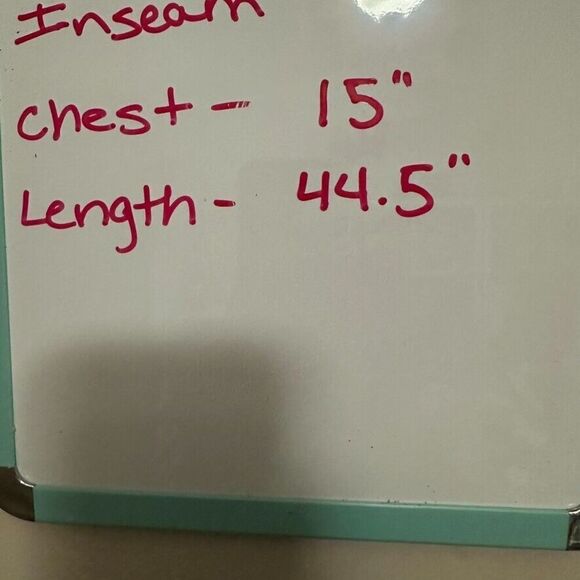 Inseam
Chest - 15"
Length - 44.5"